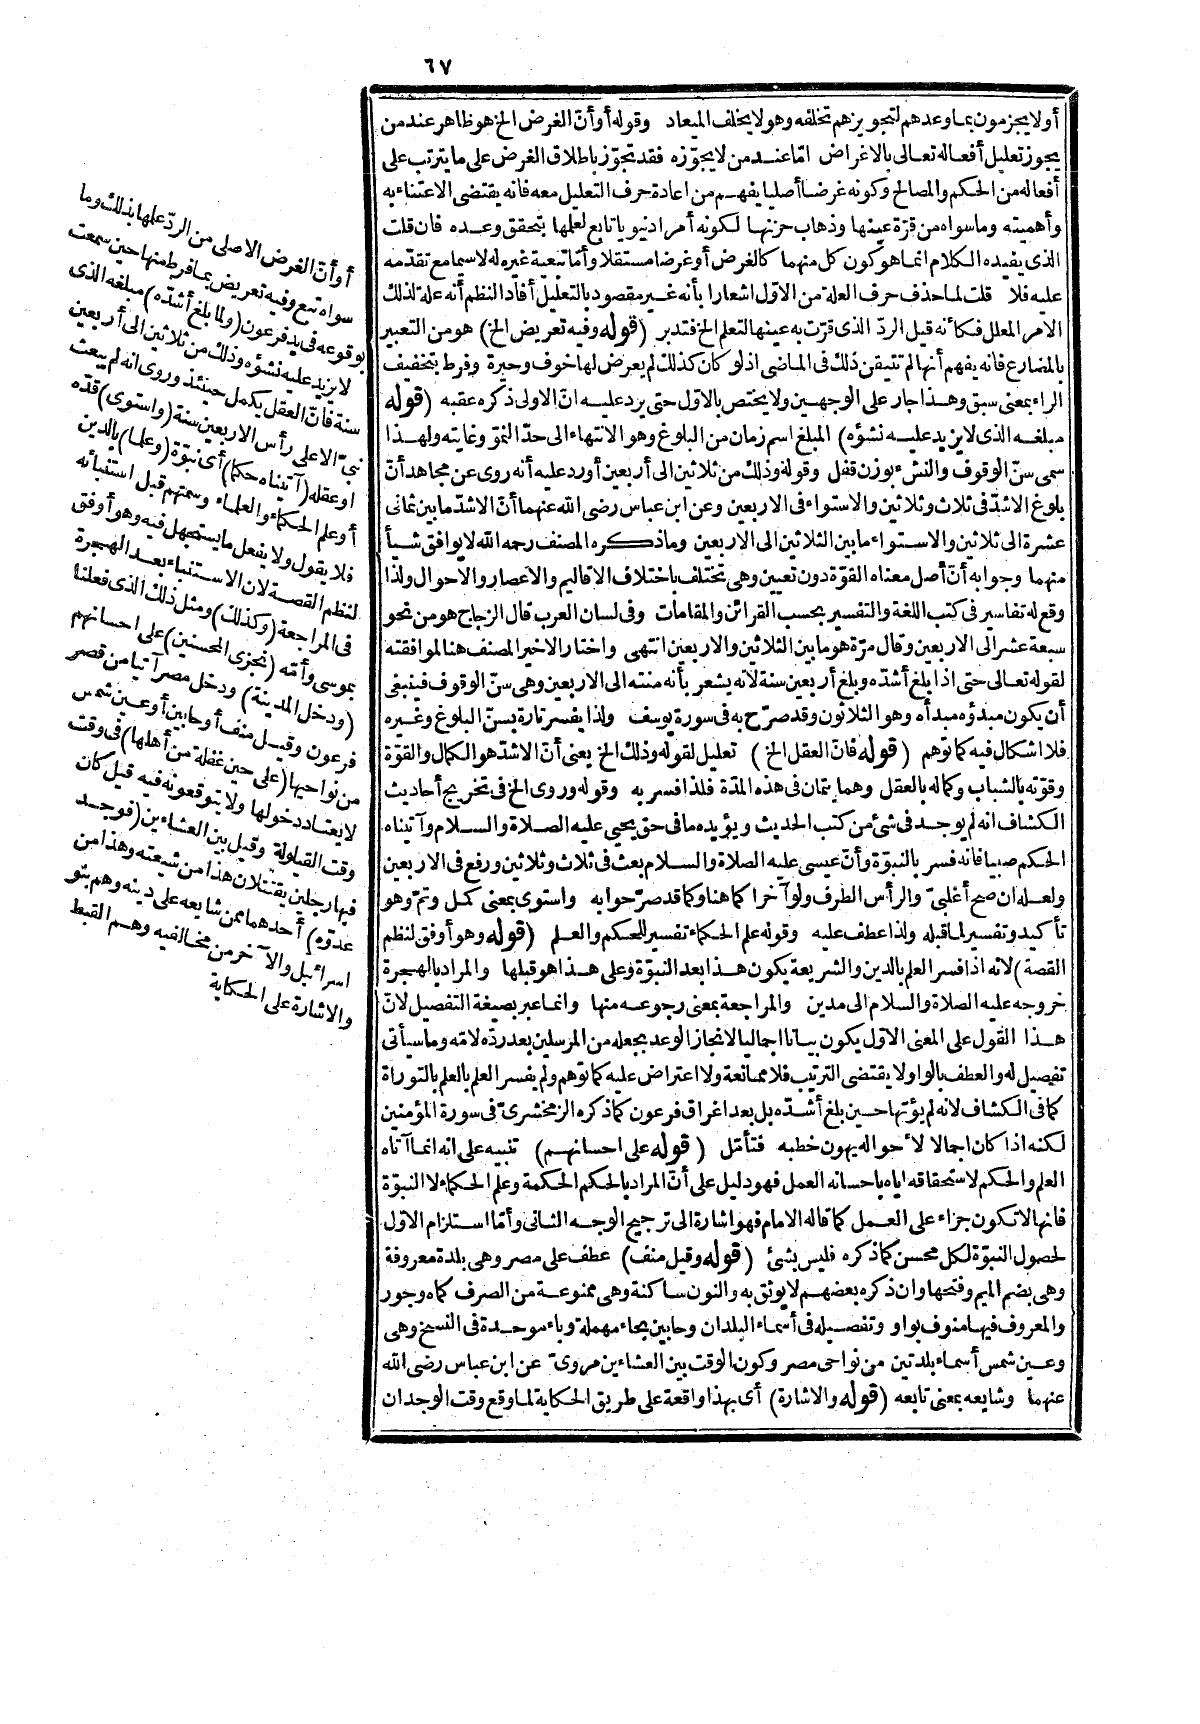 ٦٧
أولا يجزمون بما وعدهم لتجويزهم تخلفه وهو لا يخلف الميعاد وقوله أو أنّ الغرض الخ هو ظاهر عند من
يجوز تعليل أفعاله تعالى بالاغراض امّا عند من لا يجوّزه فقد تجوّز باطلاق الغرض على ما يترتب على
أفعاله من الحكم والمصالح وكونه غرضا أصليا يفهم من اعادة حرف التعليل معه فانه يقتضى الاعتناء به
وأهميته وما سواه من قرّة عينها وذهاب حزنها لكونه أمرا دنيويا تابع لعلها بتحقق وعده فان قلت
الذى يفيده الكلام انما هو كون كل منهما كالغرض أو غرضا مستقلا وأمّا تبعية غيره له لا سيما مع تقدّمه
عليه فلا قلت لما حذف حرف العلة من الاوّل اشعارا بأنه غير مقصود بالتعليل أفاد النظم أنه علة لذلك
الامر المعلل فكأنه قيل الردّ الذى قرّت به عينها لتعلم الخ فتدبر (قوله وفيه تعريض الخ) هو من التعبير
بالمضارع فانه يفهم أنها لم تتيقن ذلك فى الماضى اذ لو كان كذلك لم يعرض لها خوف وحيرة وفرط بتخفيف
الراء بمعنى سبق وهذا جار على الوجهين ولا يختص بالاوّل حتى يرد عليه انّ الاولى ذكره عقبه (قوله
مبلغه الذى لا يزيد عليه نشؤه) المبلغ اسم زمان من البلوغ وهو الانتهاء الى حدّ النموّ وغايته ولهذا
سمى سنّ الوقوف والنشء بوزن قفل وقوله وذلك من ثلاثين الى أربعين أورد عليه أنه روى عن مجاهد أنّ
بلوغ الاشدّ فى ثلاث وثلاثين والاستواء فى الاربعين وعن ابن عباس رضى الله عنهما أنّ الاشدّ ما بين ثمانى
عشرة الى ثلاثين والاستواء ما بين الثلاثين الى الاربعين وما ذكره المصنف رحمه الله لا يوافق شيأ
منهما وجوابه أنّ أصل معناه القوّة دون تعيين وهى تختلف باختلاف الاقاليم والاعصار والاحوال ولذا
وقع له تفاسير فى كتب اللغة والتفسير بحسب القرائن والمقامات وفى لسان العرب قال الزجاج هو من نحو
سبعة عشر الى الاربعين وقال مرّة هو ما بين الثلاثين والاربعين انتهى واختار الاخير المصنف هنا لموافقته
لقوله تعالى حتى اذا بلغ أشدّه وبلغ أربعين سنة لانه يشعر بأنه منته الى الاربعين وهى سنّ الوقوف فينبغى
أن يكون مبدؤه مبدأه وهو الثلاثون وقد صرّح به فى سورة يوسف ولذا يفسر تارة بسنّ البلوغ وغيره
فلا اشكال فيه كما توهم (قوله فانّ العقل الخ) تعليل لقوله وذلك الخ يعنى أنّ الاشدّ هو الكمال والقوّة
وقوّته بالشباب وكماله بالعقل وهما يتمان فى هذه المدّة فلذا فسر به وقوله وروى الخ فى تخريج أحاديث
الكشاف انه لم يوجد فى شئ من كتب الحديث ويؤيده ما فى حق يحيى عليه الصلاة والسلام وآتيناه
الحكم صبيا فانه فسر بالنبوّة وأنّ عيسى عليه الصلاة والسلام بعث فى ثلاث وثلاثين ورفع فى الاربعين
ولعله ان صح أغلبىّ والرأس الطرف ولو آخرا كما هنا وكما قد صرّحوا به واستوى بمعنى كمل وتمّ وهو
تأكيد وتفسير لما قبله ولذا عطف عليه وقوله علم الحكماء تفسير للحكم والعلم (قوله وهو أوفق لنظم
القصة) لانه اذا فسر العلم بالدين والشريعة يكون هذا بعد النبوّة وعلى هذا هو قبلها والمراد بالهجرة
خروجه عليه الصلاة والسلام الى مدين والمراجعة بمعنى رجوعه منها وانما عبر بصيغة التفصيل لانّ
هذا القول على المعنى الاوّل يكون بيانا اجماليا لانجاز الوعد بجعله من المرسلين بعد ردّه لامّه وما سيأتى
تفصيل له والعطف بالواو لا يقتضى الترتيب فلا ممانعة ولا اعتراض عليه كما توهم ولم يفسر العلم بالعلم بالتوراة
كما فى الكشاف لانه لم يؤتها حين بلغ أشدّه بل بعد اغراق فرعون كما ذكره الزمخشرىّ فى سورة المؤمنين
لكنه اذا كان اجمالا لاحواله يهون خطبه فتأمّل (قوله على احسانهم) تنبيه على انه انما آتاه
العلم والحكم لاستحقاقه اياه باحسانه العمل فهو دليل على أنّ المراد بالحكم الحكمة وعلم الحكماء لا النبوّة
فانها لا تكون جزاء على العمل كما قاله الامام فهو اشارة الى ترجيح الوجه الثانى وأمّا استلزام الاوّل
لحصول النبوّة لكل محسن كما ذكره فليس بشئ (قوله وقيل منف) عطف على مصر وهى بلدة معروفة
وهى بضم الميم وفتحها وان ذكره بعضهم لا يوثق به والنون ساكنة وهى ممنوعة من الصرف كماه وجور
والمعروف فيها منوف بواو وتفصيله فى أسماء البلدان وحابين بحاء مهملة وباء موحدة فى النسخ وهى
وعين شمس أسماء بلدتين من نواحى مصر وكون الوقت بين العشاءين مروىّ عن ابن عباس رضى الله
عنهما وشايعه بمعنى تابعه (قوله والاشارة) أى بهذا واقعة على طريق الحكاية لما وقع وقت الوجدان
أو أنّ الغرض الاصلى من الردّ علمها بذلك وما
سواه تبع وفيه تعريض بما فرط منها حين سمعت
بوقوعه فى يد فرعون (ولما بلغ أشدّه) مبلغه الذى
لا يزيد عليه نشؤه وذلك من ثلاثين الى أربعين
سنة فانّ العقل يكمل حينئذ وروى انه لم يبعث
نبىّ الا على رأس الاربعين سنة (واستوى) قدّه
أو عقله (آتيناه حكما) أى نبوّة (وعلما) بالدين
أو علم الحكماء والعلماء وسمتهم قبل استنبائه
فلا يقول ولا يفعل ما يستجهل فيه وهو أوفق
لنظم القصة لان الاستنباء بعد الهجرة
فى المراجعة (وكذلك) ومثل ذلك الذى فعلنا
بموسى وأمّه (نجزى المحسنين) على احسانهم
(ودخل المدينة) ودخل مصر آتيا من قصر
فرعون وقيل منف أو حابين أو عين شمس
من نواحيها (على حين غفلة من أهلها) فى وقت
لا يعتاد دخولها ولا يتوقعونه فيه قيل كان
وقت القيلولة وقيل بين العشاءين (فوجد
فيها رجلين يقتتلان هذا من شيعته وهذا من
عدوّه) أحدهما ممن شايعه على دينه وهم بنو
اسرائيل والآخر من مخالفيه وهم القبط
والاشارة على الحكاية